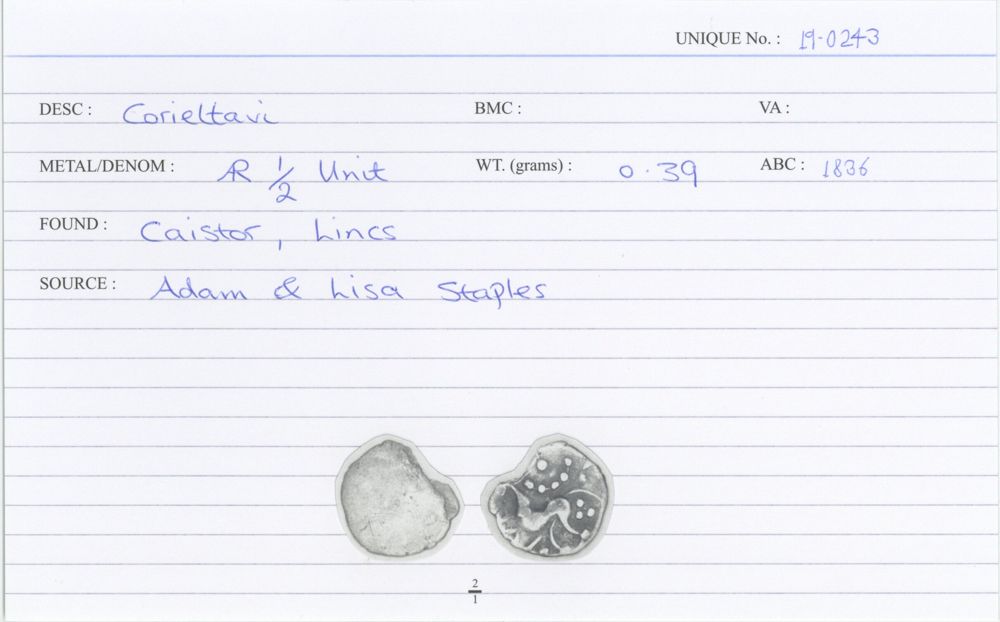 UNIQUE No. : 19-0243
DESC : Corieltavi BMC : VA :
METAL/DENOM : AR 1/2 Unit WT. (grams) : 0.39 ABC : 1836
FOUND : Caistor, Lincs
SOURCE : Adam & Lisa Staples
2
1